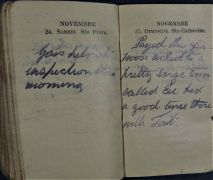 NOVEMBRE
24. SAMEDI. Ste Flora.
Gas helmet
inspection this
morning
NOVEMBRE
25. DIMANCHE. Ste Catherine.
Payed this
moon to a
pretty large town
called
a good time there
with Fred.